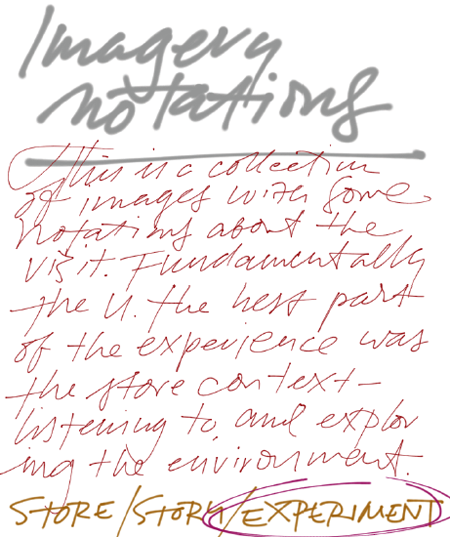 Imagery
notations
This is a collection
of images with some
notations about the
visit. Fundamentally
the U. the best part
of the experience was
the store context-
listening to, and explor
ing the environment.
STORE/STORY/EXPERIMENT